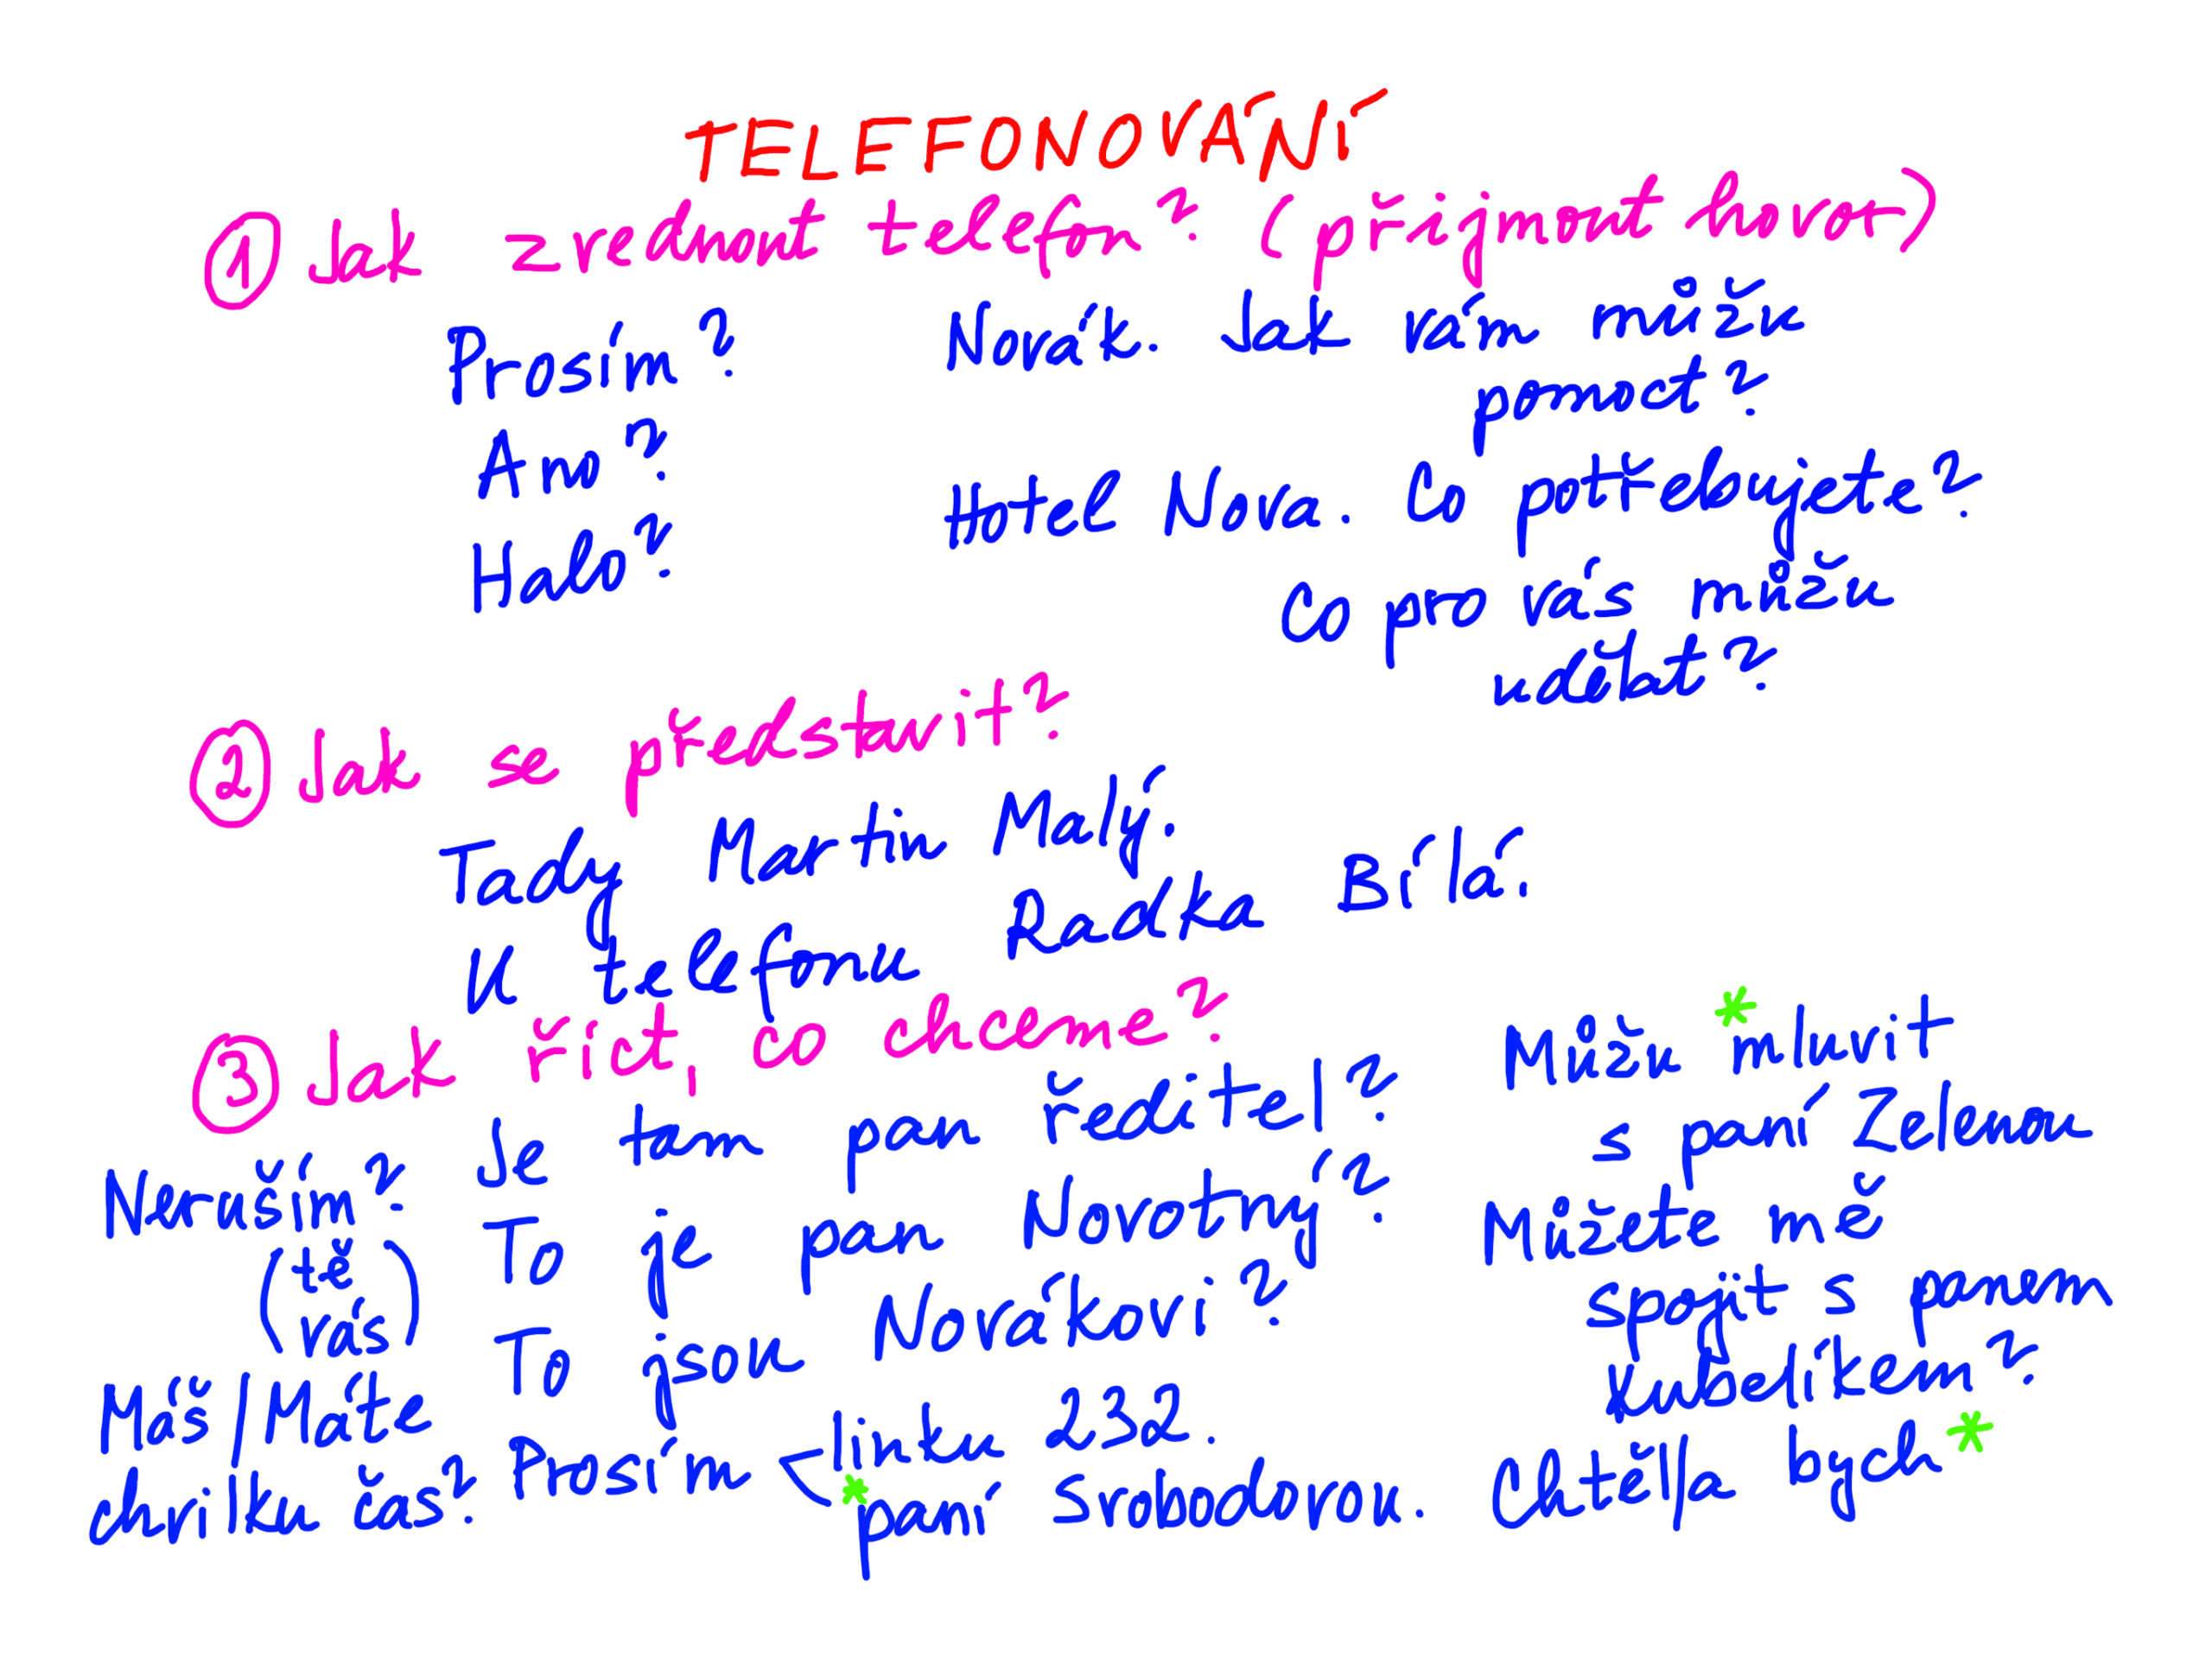 TELEFONOVÁNÍ
① Jak zvednout telefon? (přijmout hovor)
Prosím?
Ano?
Halo?
Novák. Jak vám můžu
pomoct?
Hotel Nova. Co potřebujete?
Co pro vás můžu
udělat?
② Jak se představit?
Tady Martin Malý.
U telefonu Radka Bílá.
③ Jak říct, co chceme?
Neruším?
(tě
vás)
Máš/Máte
chvilku čas?
Je tam pan ředitel?
To je pan Novotný?
To jsou Novákovi?
Prosím < linku 232.
*paní Svobodovou.
Můžu *mluvit
s paní Zelenou
Můžete mě
spojit s panem
Kubelíkem?
Chtěl/a bych*